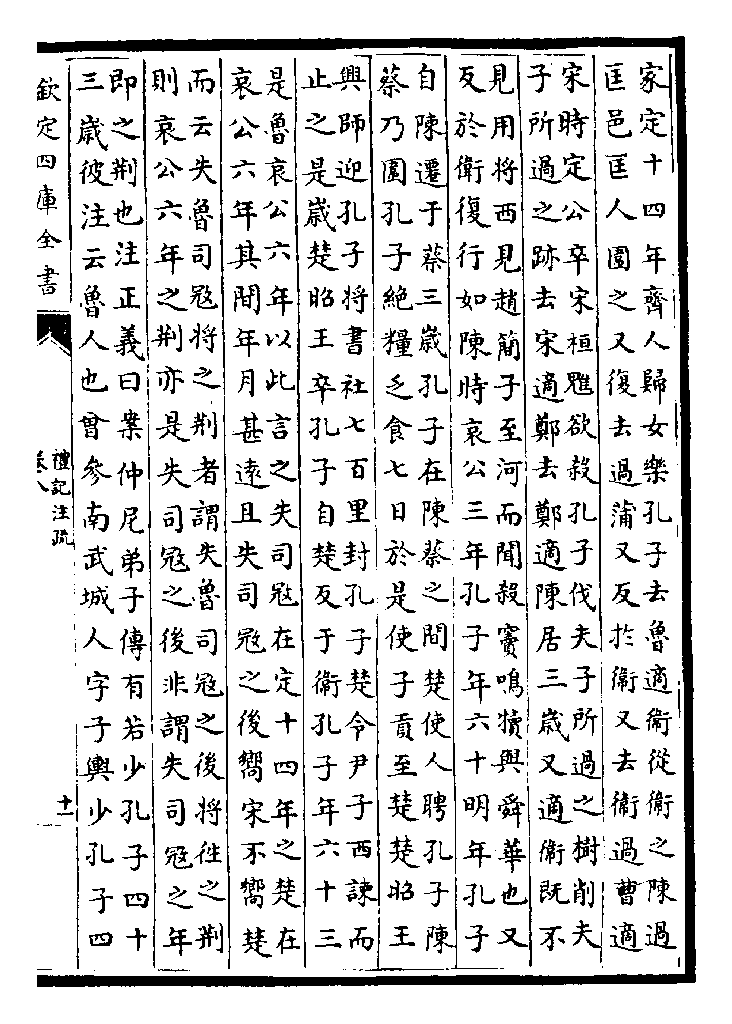 家定十四年齊人歸女樂孔子去魯適衛從衛之陳過
匡邑匡人圍之又復去過蒲又反於衛又去衛過曹適
宋時定公卒宋桓魋欲殺孔子伐夫子所過之樹削夫
子所過之跡去宋適鄭去鄭適陳居三歲又適衛既不
見用將西見趙簡子至河而聞殺竇鳴犢與舜華也又
反於衛復行如陳時哀公三年孔子年六十明年孔子
自陳遷于蔡三歲孔子在陳蔡之間楚使人聘孔子陳
蔡乃圍孔子絶糧乏食七日於是使子貢至楚楚昭王
興師迎孔子將書社七百里封孔子楚令尹子西諫而
止之是歲楚昭王卒孔子自楚反于衛孔子年六十三
是魯哀公六年以此言之失司冦在定十四年之楚在
哀公六年其間年月甚遠且失司冦之後嚮宋不嚮楚
而云失魯司冦將之荆者謂失魯司冦之後將徃之荆
則哀公六年之荆亦是失司冦之後非謂失司冦之年
即之荆也注正義曰案仲尼弟子傳有若少孔子四十
三歲彼注云魯人也曾參南武城人字子輿少孔子四
欽定四庫全書
禮記注疏
卷八
十一